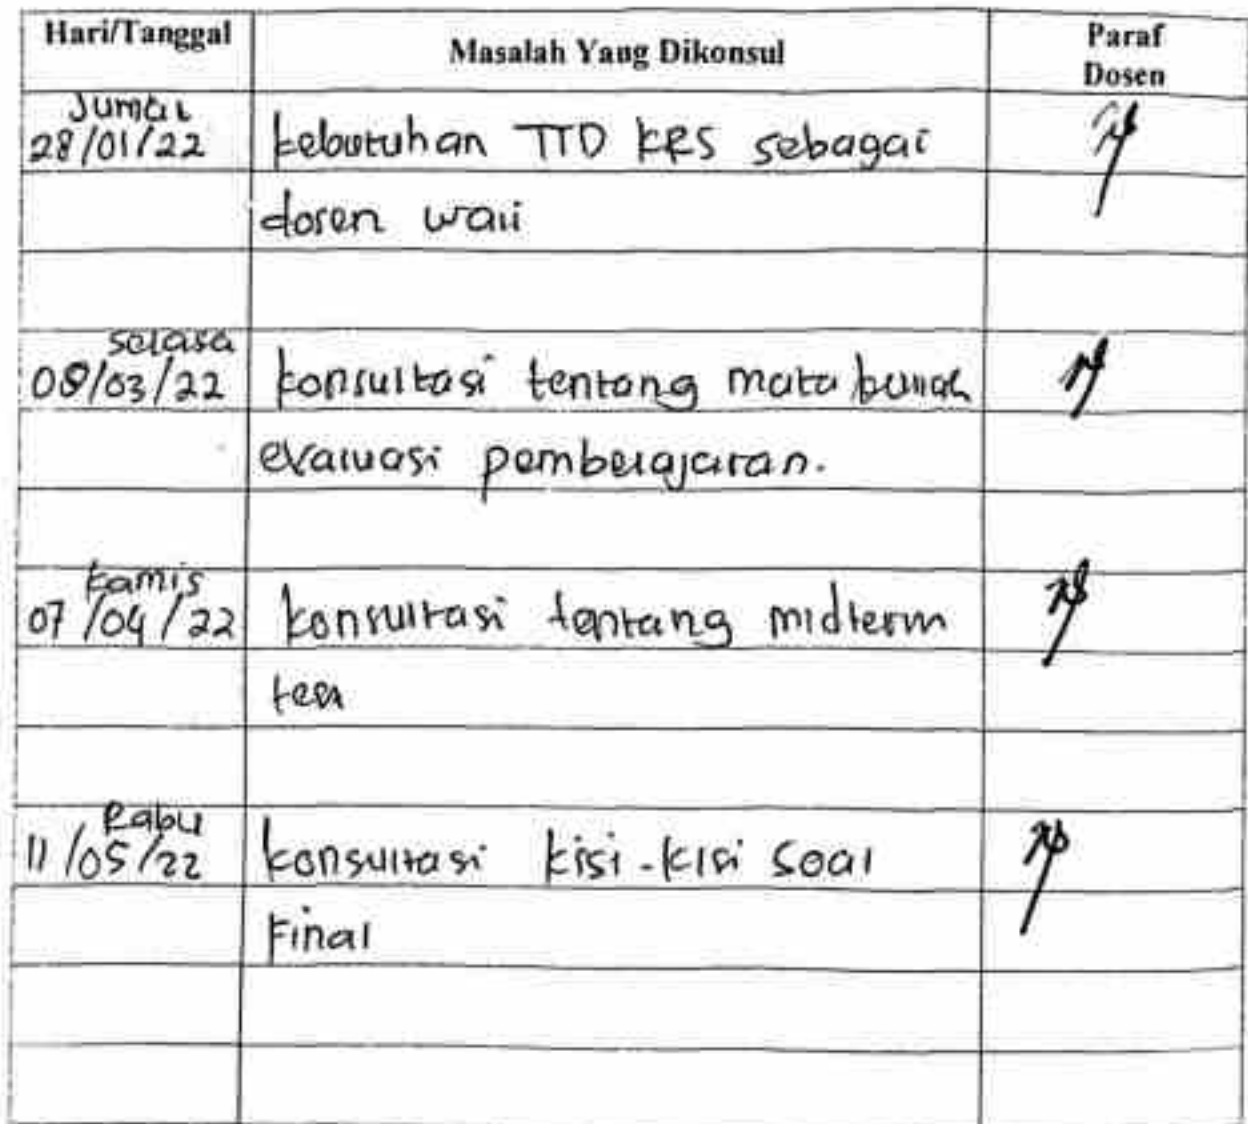 Hari/Tanggal
Masalah Yang Dikonsul
Paraf
Dosen
Jumat
28/01/22
kebutuhan TTD KRS sebagai
dosen wali
selasa
08/03/22
konsultasi tentang mata kuliah
evaluasi pembelajaran.
kamis
07/04/22
konsultasi tentang midterm
test
Rabu
11/05/22
konsultasi kisi-kisi soal
Final